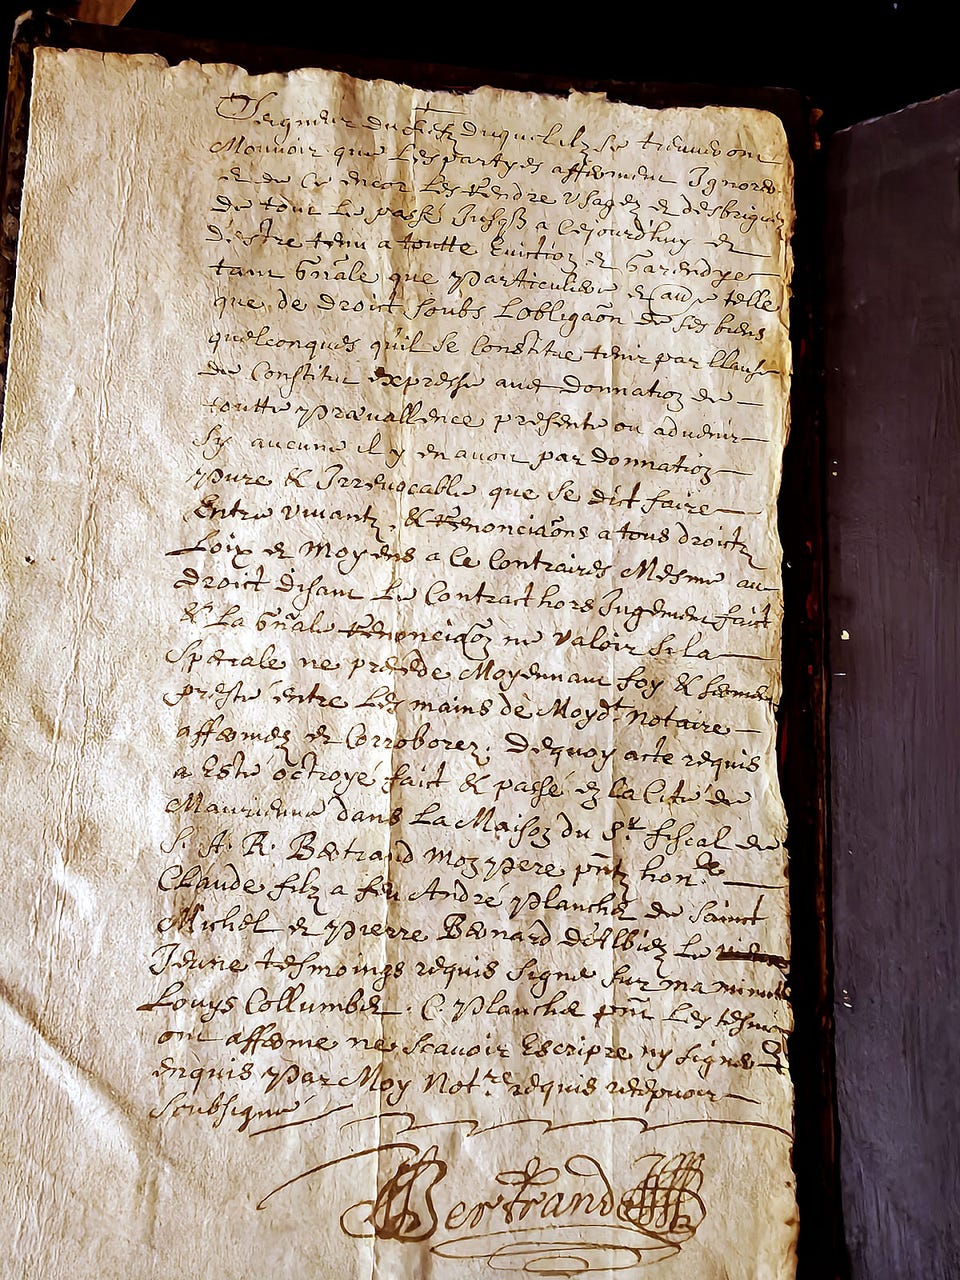 Seigneur du fiefz duquel ilz se trouveront
Mouvoir que Les partyes afferment Ignorer
et de Ce encor Les Rendre Usagez et desbriguez
de tout Le passé Jusqs a Cejourd'huy et
d'estre tenu a toutte Eviction et Garendyes
tant gnãle que particuliere et au telle
que de droict soubs Lobligaõn de ses biens
quelconques quil se Constitue tenir par Clause
de Constitut expresse avec donnation de
toutte prævallence presente ou advenir
sy aucune il y en avoit par donnation
pure & Irrevocable que se dict faire
Entre vivantz, & Renonciaõns a tous droictz
Loix et Moyens a Ce Contraires Mesme au
droict disant Le Contract hors Jugement faict
& La gnãle Renonciaõn ne valoir si la
Speciale ne precede Moyennant foy & serment
presté entre Les mains de Moydt Notaire
affermez et Corroborez. Dequoy acte requis
a Esté octroyé faict & passé en la Cité de
Maurienne dans La Maison du Sr. fiscal de
S. A. R. Bertrand Mon pere pñtz hon.ble
Claude filz a feu André Planche de Sainct
Michel et Pierre Bernard d'Albiez Le
Jeune tesmoings requis signé sur ma minutte
Louys Collumbet. C. Planche pñt Les tesmoings
ont affermé ne scavoir Escripre ny signer
enquis Par Moy Notre requis recepvoir
soubsigné
Bertrand